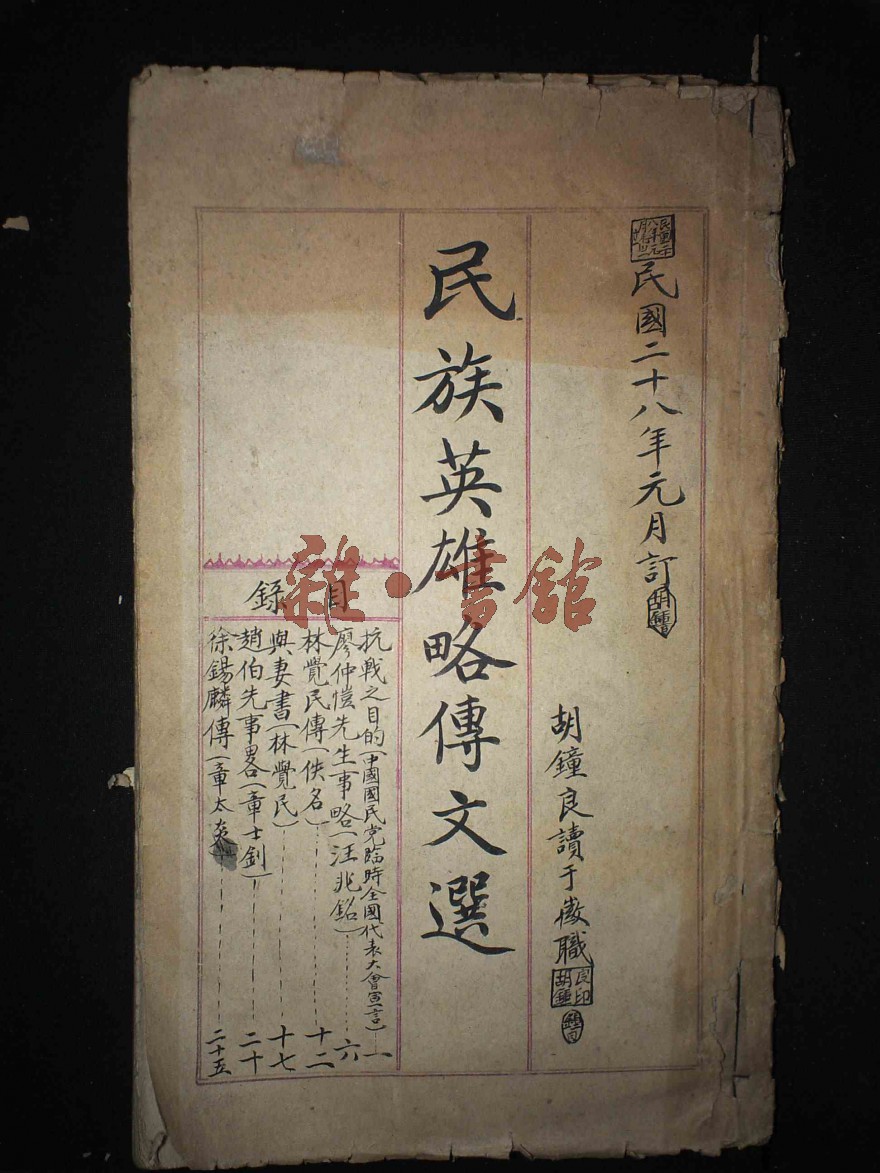 民國二十八年元月訂
胡鐘良讀于徽職
良印胡鐘
民族英雄略傳文選
目錄
抗戰之目的(中國國民党臨時全國代表大會宣言)一
廖仲愷先生事略(汪兆銘)六
林覺民傳(佚名)十二
與妻書(林覺民)十七
趙伯先事畧(章士釗)二十
徐錫麟傳(章太炎二十五
雜·書館